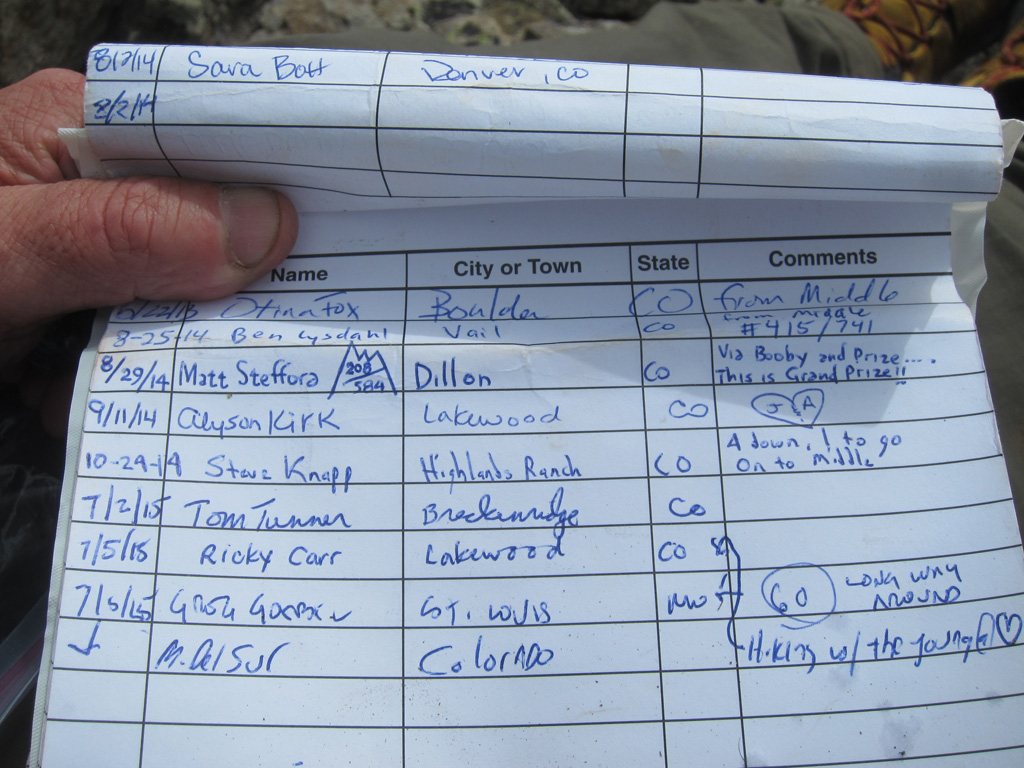 8/2/14 Sara Batt Denver, CO
8/2/14
Name City or Town State Comments
Fox Boulder CO from Middle
8-25-14 Ben Lysdahl Vail CO from Middle #415/741
8/29/14 Matt Steffora 208 584 Dillon CO Via Booby and Prize....
This is Grand Prize!!
9/11/14 Alyson Kirk Lakewood CO J A
10-29-14 Steve Knapp Highlands Ranch CO 4 down, 1 to go
On to Middle
7/2/15 Tom Turner Breckenridge Co
7/5/15 Ricky Carr Lakewood CO
7/5/15 Greg St. Louis MO 60 LONG WAY
AROUND
M. Del Sur Colorado Hiking w/ the